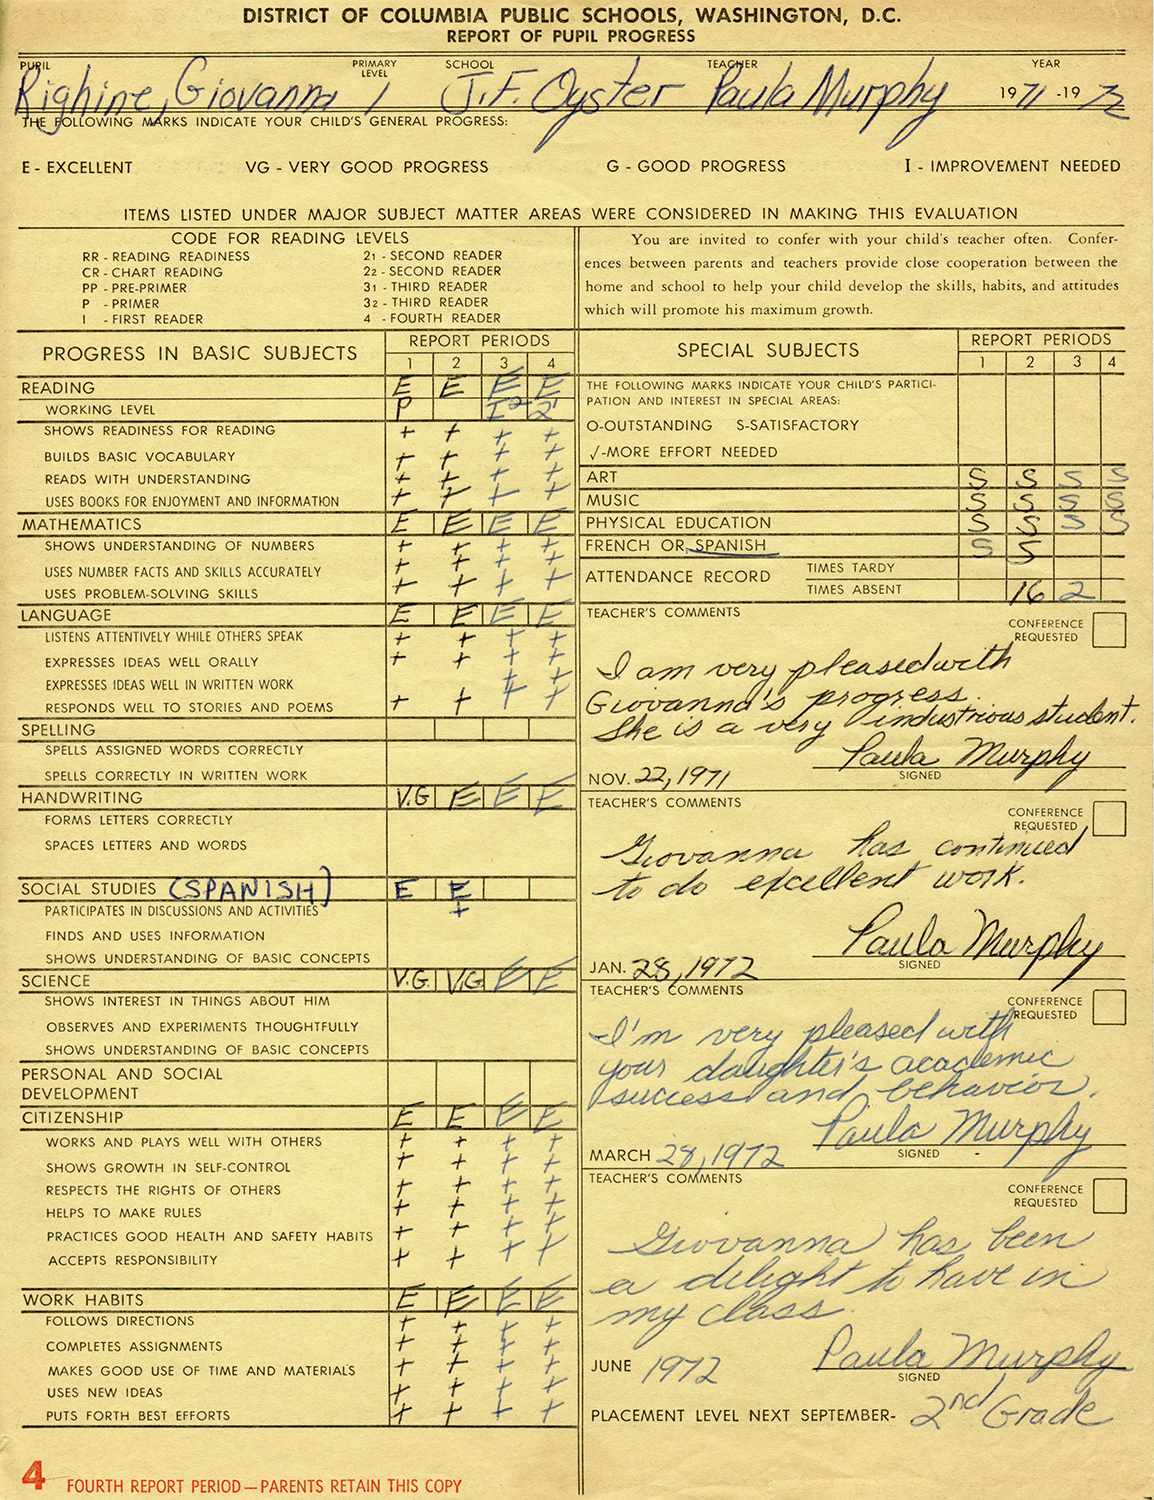 DISTRICT OF COLUMBIA PUBLIC SCHOOLS, WASHINGTON, D.C.
REPORT OF PUPIL PROGRESS
PUPIL PRIMARY LEVEL SCHOOL TEACHER YEAR
Righine, Giovanna 1 J.F. Oyster Paula Murphy 1971-1972
THE FOLLOWING MARKS INDICATE YOUR CHILD'S GENERAL PROGRESS:
E - EXCELLENT VG - VERY GOOD PROGRESS G - GOOD PROGRESS I - IMPROVEMENT NEEDED
ITEMS LISTED UNDER MAJOR SUBJECT MATTER AREAS WERE CONSIDERED IN MAKING THIS EVALUATION
CODE FOR READING LEVELS
RR - READING READINESS 21 - SECOND READER
CR - CHART READING 22 - SECOND READER
PP - PRE-PRIMER 31 - THIRD READER
P - PRIMER 32 - THIRD READER
I - FIRST READER 4 - FOURTH READER
You are invited to confer with your child's teacher often. Confer-
ences between parents and teachers provide close cooperation between the
home and school to help your child develop the skills, habits, and attitudes
which will promote his maximum growth.
PROGRESS IN BASIC SUBJECTS REPORT PERIODS
1 2 3 4
READING E E E E
WORKING LEVEL P I2 21
SHOWS READINESS FOR READING + + + +
BUILDS BASIC VOCABULARY + + + +
READS WITH UNDERSTANDING + + + +
USES BOOKS FOR ENJOYMENT AND INFORMATION + + + +
MATHEMATICS E E E E
SHOWS UNDERSTANDING OF NUMBERS + + + +
USES NUMBER FACTS AND SKILLS ACCURATELY + + + +
USES PROBLEM-SOLVING SKILLS + + + +
LANGUAGE E E E E
LISTENS ATTENTIVELY WHILE OTHERS SPEAK + + + +
EXPRESSES IDEAS WELL ORALLY + + + +
EXPRESSES IDEAS WELL IN WRITTEN WORK + +
RESPONDS WELL TO STORIES AND POEMS + + + +
SPELLING
SPELLS ASSIGNED WORDS CORRECTLY
SPELLS CORRECTLY IN WRITTEN WORK
HANDWRITING V.G E E E
FORMS LETTERS CORRECTLY
SPACES LETTERS AND WORDS
SOCIAL STUDIES (SPANISH) E E
PARTICIPATES IN DISCUSSIONS AND ACTIVITIES +
FINDS AND USES INFORMATION
SHOWS UNDERSTANDING OF BASIC CONCEPTS
SCIENCE V.G. V.G. E E
SHOWS INTEREST IN THINGS ABOUT HIM
OBSERVES AND EXPERIMENTS THOUGHTFULLY
SHOWS UNDERSTANDING OF BASIC CONCEPTS
PERSONAL AND SOCIAL
DEVELOPMENT
CITIZENSHIP E E E E
WORKS AND PLAYS WELL WITH OTHERS + + + +
SHOWS GROWTH IN SELF-CONTROL + + + +
RESPECTS THE RIGHTS OF OTHERS + + + +
HELPS TO MAKE RULES + + + +
PRACTICES GOOD HEALTH AND SAFETY HABITS + + + +
ACCEPTS RESPONSIBILITY + + + +
WORK HABITS E E E E
FOLLOWS DIRECTIONS + + + +
COMPLETES ASSIGNMENTS + + + +
MAKES GOOD USE OF TIME AND MATERIALS + + + +
USES NEW IDEAS + + + +
PUTS FORTH BEST EFFORTS + + + +
4 FOURTH REPORT PERIOD—PARENTS RETAIN THIS COPY
SPECIAL SUBJECTS REPORT PERIODS
1 2 3 4
THE FOLLOWING MARKS INDICATE YOUR CHILD'S PARTICI-
PATION AND INTEREST IN SPECIAL AREAS:
O-OUTSTANDING S-SATISFACTORY
√-MORE EFFORT NEEDED
ART S S S S
MUSIC S S S S
PHYSICAL EDUCATION S S S S
FRENCH OR SPANISH S S
ATTENDANCE RECORD TIMES TARDY
TIMES ABSENT 16 2
TEACHER'S COMMENTS CONFERENCE REQUESTED
I am very pleased with
Giovanna's progress.
She is a very industrious student.
Paula Murphy
NOV. 22, 1971 SIGNED
TEACHER'S COMMENTS CONFERENCE REQUESTED
Giovanna has continued
to do excellent work.
Paula Murphy
JAN. 28, 1972 SIGNED
TEACHER'S COMMENTS CONFERENCE REQUESTED
I'm very pleased with
your daughter's academic
success and behavior.
Paula Murphy
MARCH 28, 1972 SIGNED
TEACHER'S COMMENTS CONFERENCE REQUESTED
Giovanna has been
a delight to have in
my class.
Paula Murphy
JUNE 1972 SIGNED
PLACEMENT LEVEL NEXT SEPTEMBER- 2nd Grade